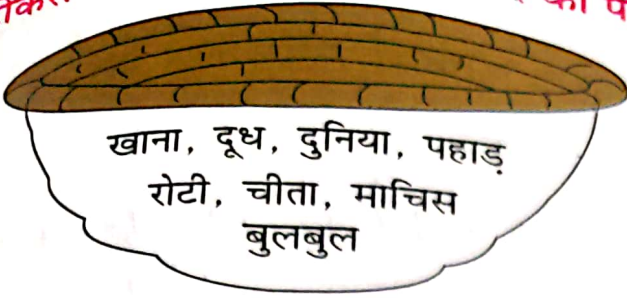 खाना, दूध, दुनिया, पहाड़
रोटी, चीता, माचिस
बुलबुल